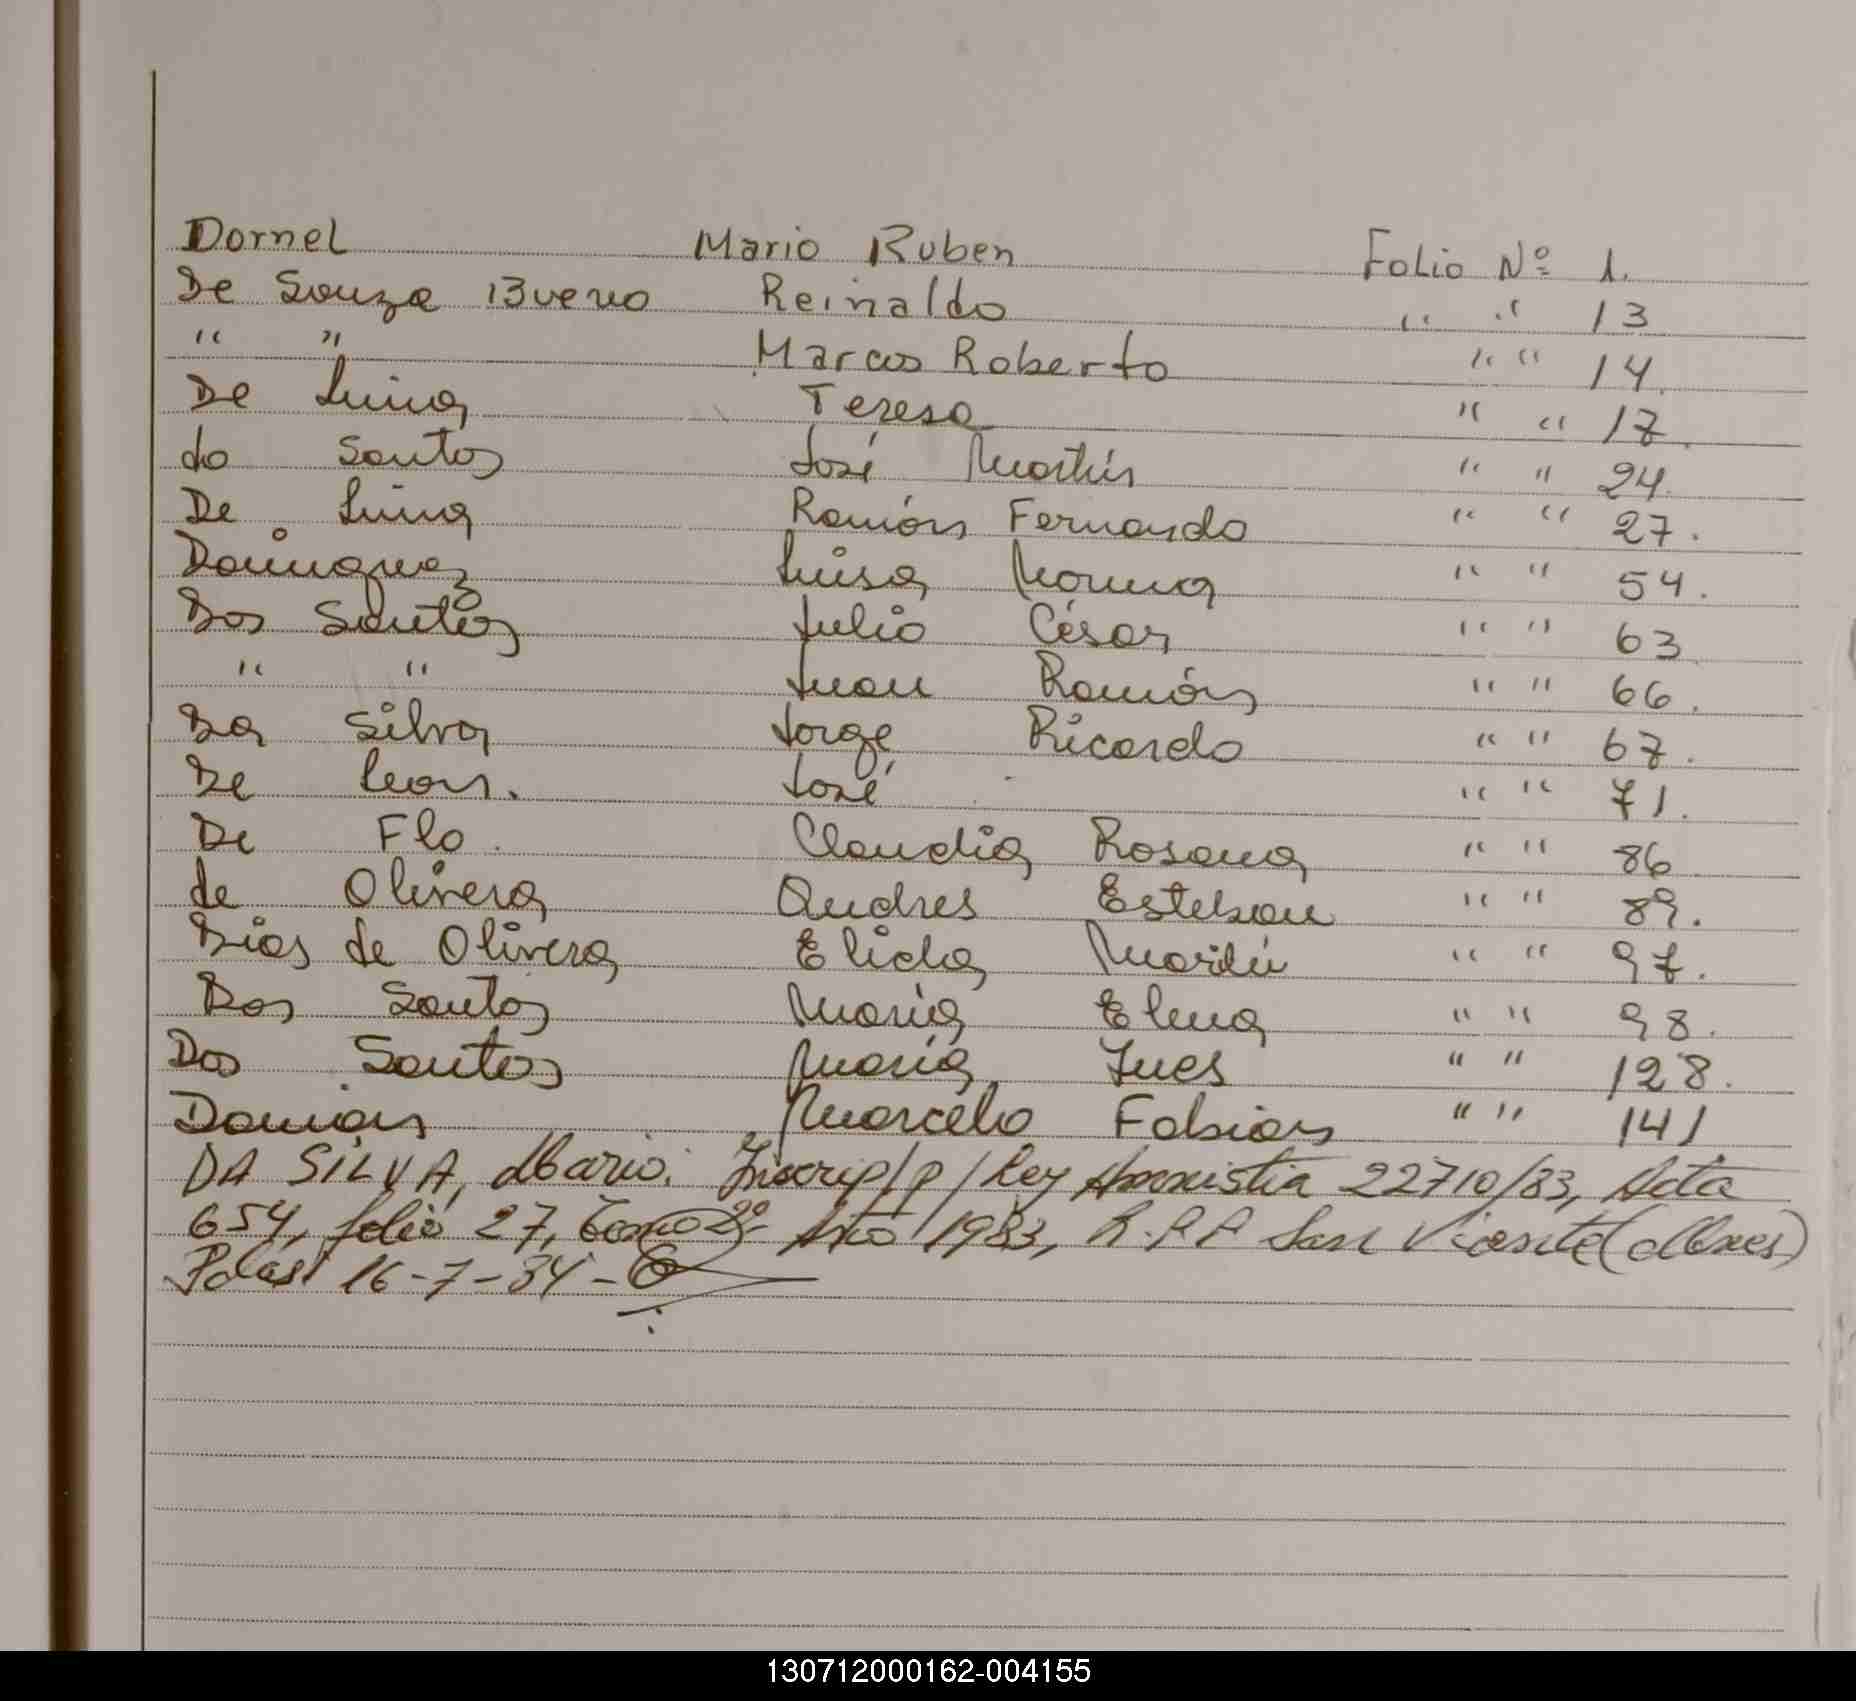 Dornel Mario Ruben Folio Nº 1.
De Souza Bueno Reinaldo " " 13
" " Marcos Roberto " " 14.
De Lima Teresa " " 17.
do Santos José Martín " " 24.
De Lima Ramón Fernando " " 27.
Dominguez Luisa Norma " " 54.
Dos Santos Julio César " " 63
" " Juan Ramón " " 66.
Da Silva Jorge Ricardo " " 67.
De Leon. José " " 71.
De Flo. Claudia Rosana " " 86
de Olivera Andres Esteban " " 89.
Dias de Olivera Elida " " 97.
Dos Santos Maria Elena " " 98.
Dos Santos Maria Ines " " 128.
Damián Marcelo Fabian " " 141
DA SILVA, Mario: Inscrip/p/Ley Amnistia 22710/83, Acta
654, folio 27, Tomo 2º Año 1983, R.P.P San Vicente (Mnes)
Pdas 16-7-84-
130712000162-004155